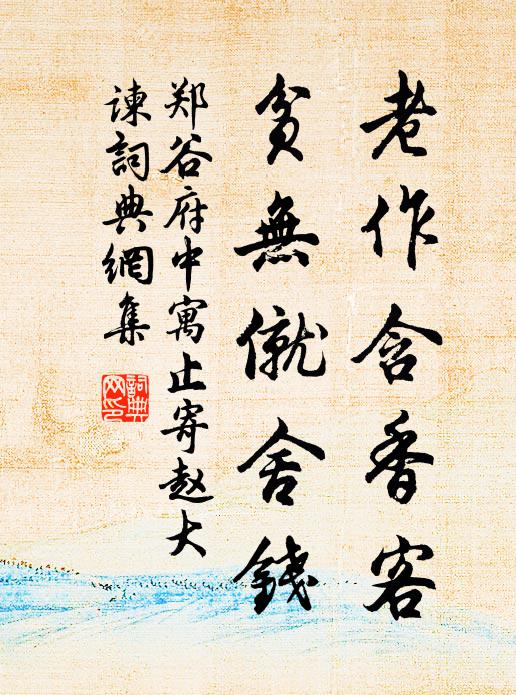 老作含香客
貧無僦舍錢
郑谷府中寓止寄赵大
諫詞典網集
詞典
网印